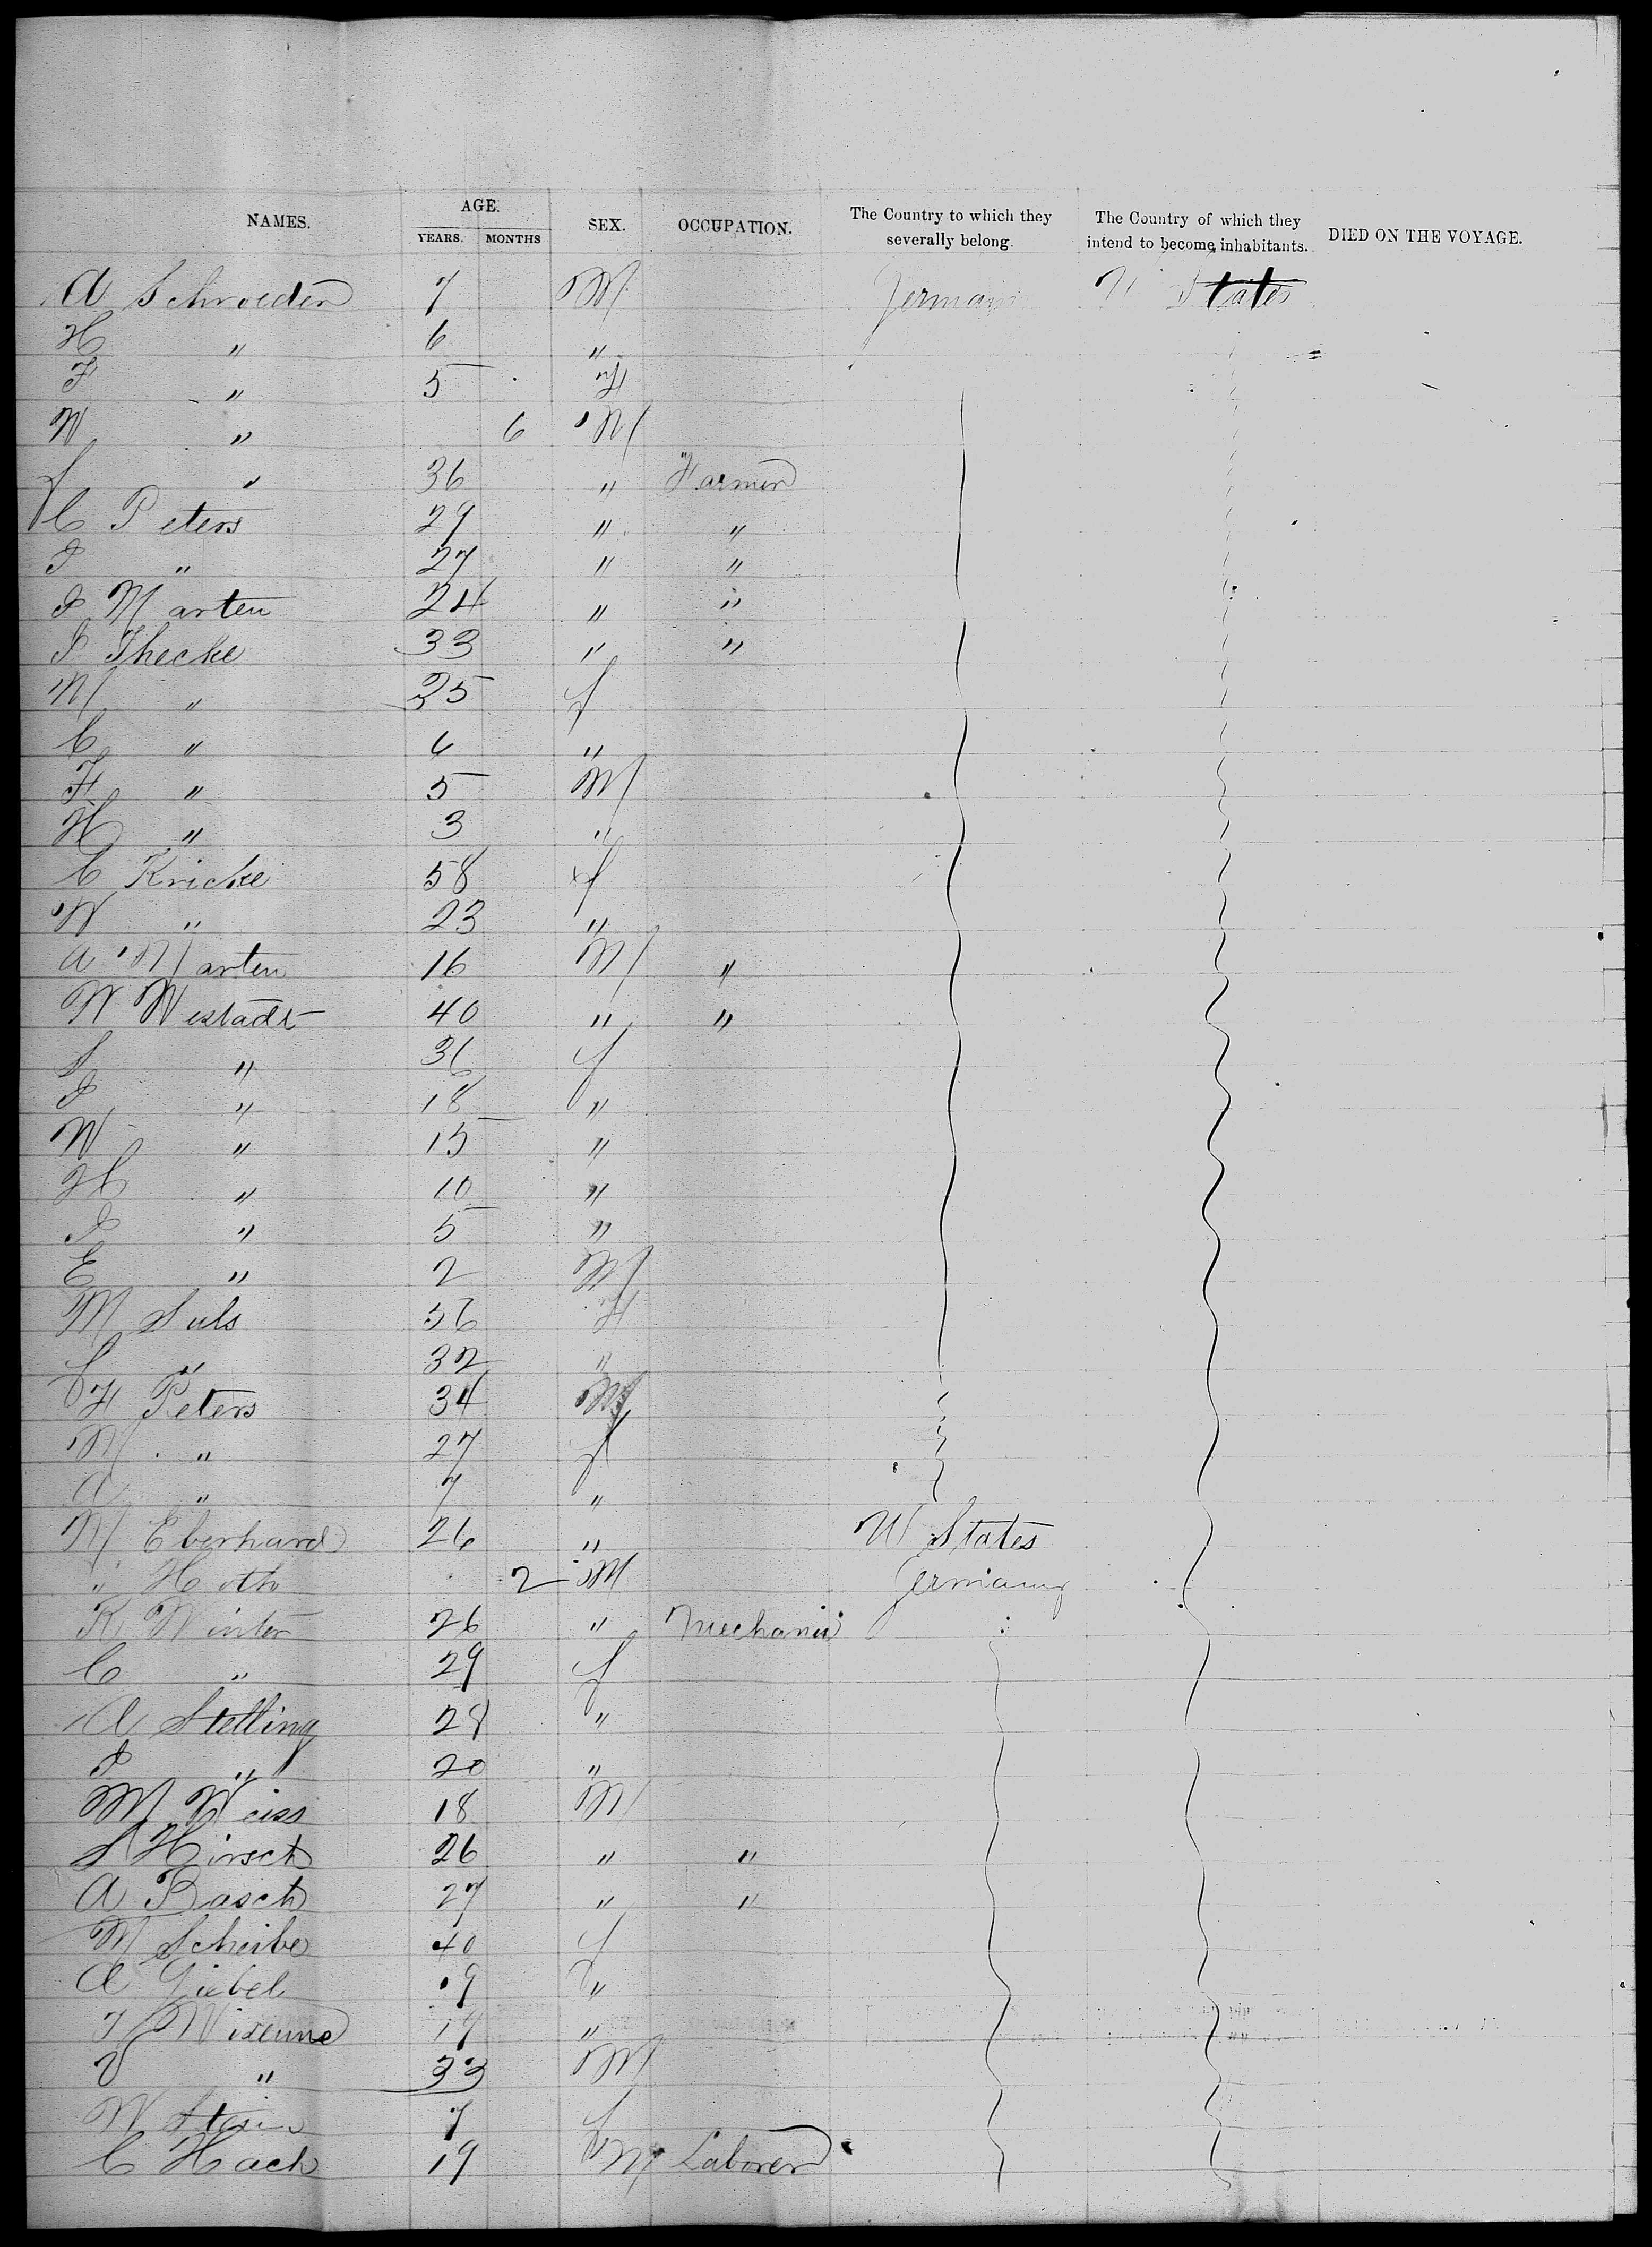 NAMES. AGE. YEARS. MONTHS SEX. OCCUPATION. The Country to which they severally belong. The Country of which they intend to become inhabitants. DIED ON THE VOYAGE.
A Schroeder 7 M Germany U States
H " 6 "
F " 5 F
W " 6 M
J " 36 " Farmer
C Peters 29 " "
J " 27 " "
J Marten 24 " "
J Thecke 33 " "
M " 25 f
C " 6 "
F " 5 M
H " 3 "
C Kricke 58 f
W " 23 "
A Marten 16 M "
W Westadt 40 " "
S " 36 f
J " 18 "
W " 15 "
H " 10 "
J " 5 "
E " 2 M
M Suls 56 F
" 32 "
F Peters 34 M
M " 27 f
A " 7 "
M Eberhard 26 " U States
" Hoth 2 M Germany
R Winter 26 " Mechanic
C " 29 f
A Stelling 28 "
J " 20 "
M Weiss 18 M
S Hirsch 26 " "
A Basch 27 " "
M Scheibe 40 f
A Giebel 19 "
"
" 33 M
W 7 f
C Hach 19 M Laborer